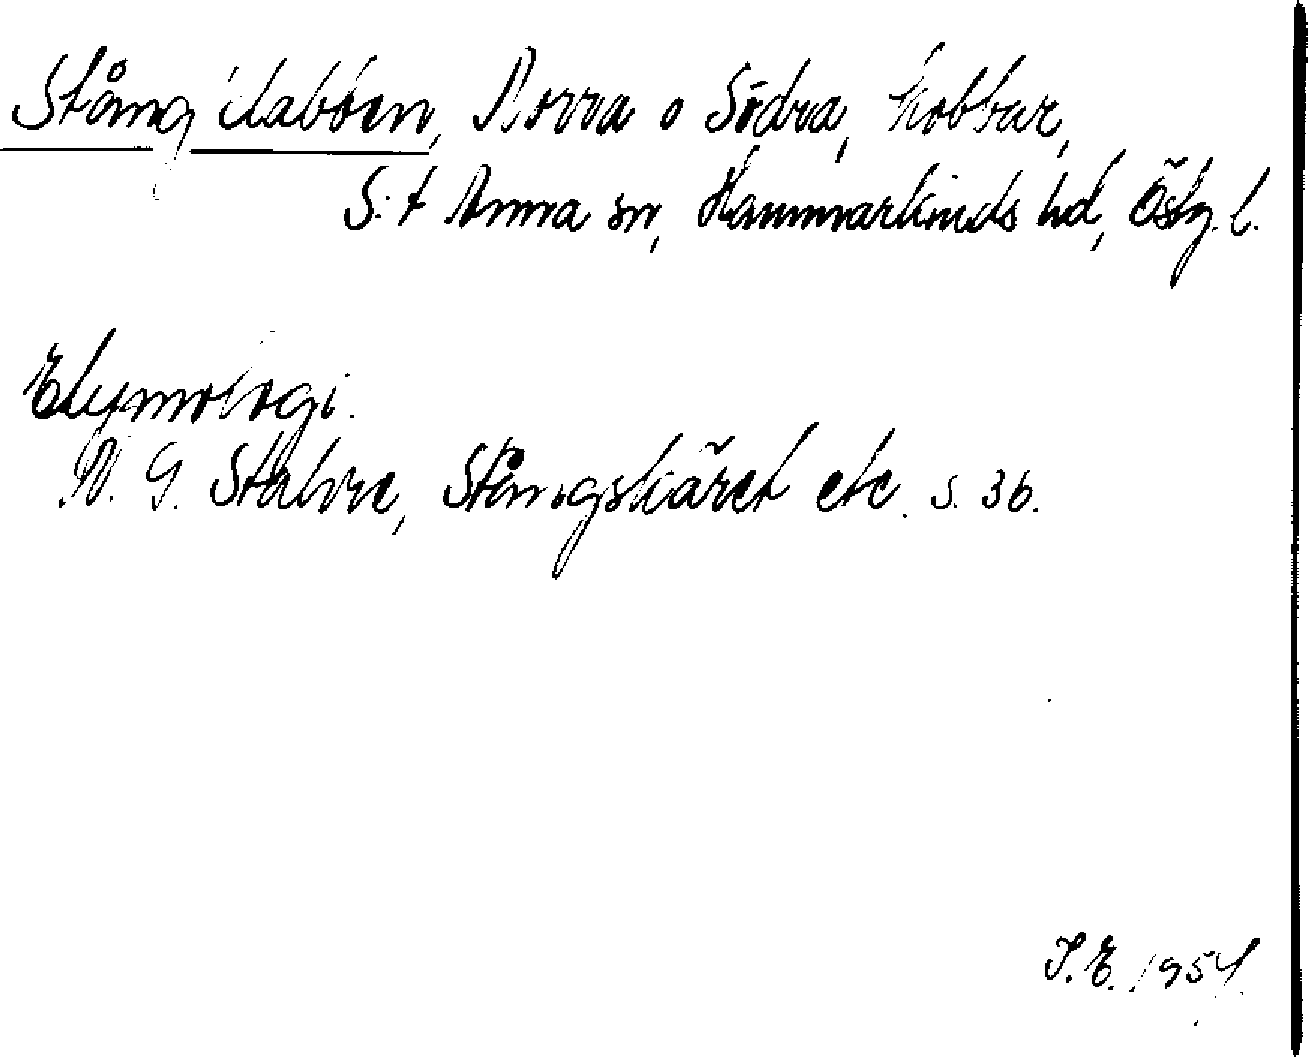 Stångklabben, Norra o Södra, kobbar,
S:t Anna sn, Hammarkinds hd, Östg. l.
Etymologi.
N. G. Stahre, Stångskäret etc. s. 36.
I.E. 1954.